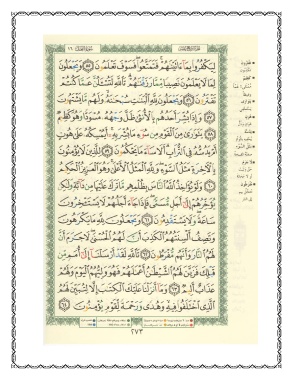 لِيَكْفُرُوا۟ بِمَآ ءَاتَيْنَٰهُمْ فَتَمَتَّعُوا۟ فَسَوْفَ تَعْلَمُونَ ٥٥ وَيَجْعَلُونَ
لِمَا لَا يَعْلَمُونَ نَصِيبًا مِّمَّا رَزَقْنَٰهُمْ تَٱللَّهِ لَتُسْـَٔلُنَّ عَمَّا كُنتُمْ
تَفْتَرُونَ ٥٦ وَيَجْعَلُونَ لِلَّهِ ٱلْبَنَٰتِ سُبْحَٰنَهُۥ وَلَهُم مَّا يَشْتَهُونَ
٥٧ وَإِذَا بُشِّرَ أَحَدُهُم بِٱلْأُنثَىٰ ظَلَّ وَجْهُهُۥ مُسْوَدًّا وَهُوَ كَظِيمٌ
٥٨ يَتَوَٰرَىٰ مِنَ ٱلْقَوْمِ مِن سُوٓءِ مَا بُشِّرَ بِهِۦٓ أَيُمْسِكُهُۥ عَلَىٰ هُونٍ
أَمْ يَدُسُّهُۥ فِى ٱلتُّرَابِ أَلَا سَآءَ مَا يَحْكُمُونَ ٥٩ لِلَّذِينَ لَا يُؤْمِنُونَ
بِٱلْءَاخِرَةِ مَثَلُ ٱلسَّوْءِ وَلِلَّهِ ٱلْمَثَلُ ٱلْأَعْلَىٰ وَهُوَ ٱلْعَزِيزُ ٱلْحَكِيمُ
٦٠ وَلَوْ يُؤَاخِذُ ٱللَّهُ ٱلنَّاسَ بِظُلْمِهِم مَّا تَرَكَ عَلَيْهَا مِن دَآبَّةٍ وَلَٰكِن
يُؤَخِّرُهُمْ إِلَىٰٓ أَجَلٍ مُّسَمًّى فَإِذَا جَآءَ أَجَلُهُمْ لَا يَسْتَـْٔخِرُونَ
سَاعَةً وَلَا يَسْتَقْدِمُونَ ٦١ وَيَجْعَلُونَ لِلَّهِ مَا يَكْرَهُونَ
وَتَصِفُ أَلْسِنَتُهُمُ ٱلْكَذِبَ أَنَّ لَهُمُ ٱلْحُسْنَىٰ لَا جَرَمَ أَنَّ
لَهُمُ ٱلنَّارَ وَأَنَّهُم مُّفْرَطُونَ ٦٢ تَٱللَّهِ لَقَدْ أَرْسَلْنَآ إِلَىٰٓ أُمَمٍ مِّن
قَبْلِكَ فَزَيَّنَ لَهُمُ ٱلشَّيْطَٰنُ أَعْمَٰلَهُمْ فَهُوَ وَلِيُّهُمُ ٱلْيَوْمَ وَلَهُمْ
عَذَابٌ أَلِيمٌ ٦٣ وَمَآ أَنزَلْنَا عَلَيْكَ ٱلْكِتَٰبَ إِلَّا لِتُبَيِّنَ لَهُمُ
ٱلَّذِى ٱخْتَلَفُوا۟ فِيهِ وَهُدًى وَرَحْمَةً لِّقَوْمٍ يُؤْمِنُونَ ٦٤
٢٧٣